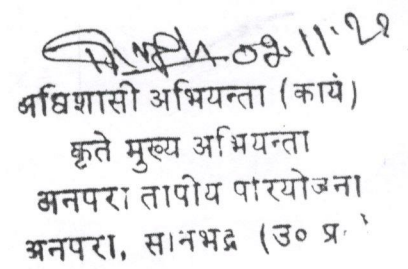 02.11.22
अधिशासी अभियन्ता (कार्य)
कृते मुख्य अभियन्ता
अनपरा तापीय परियोजना
अनपरा, सोनभद्र (उ० प्र०